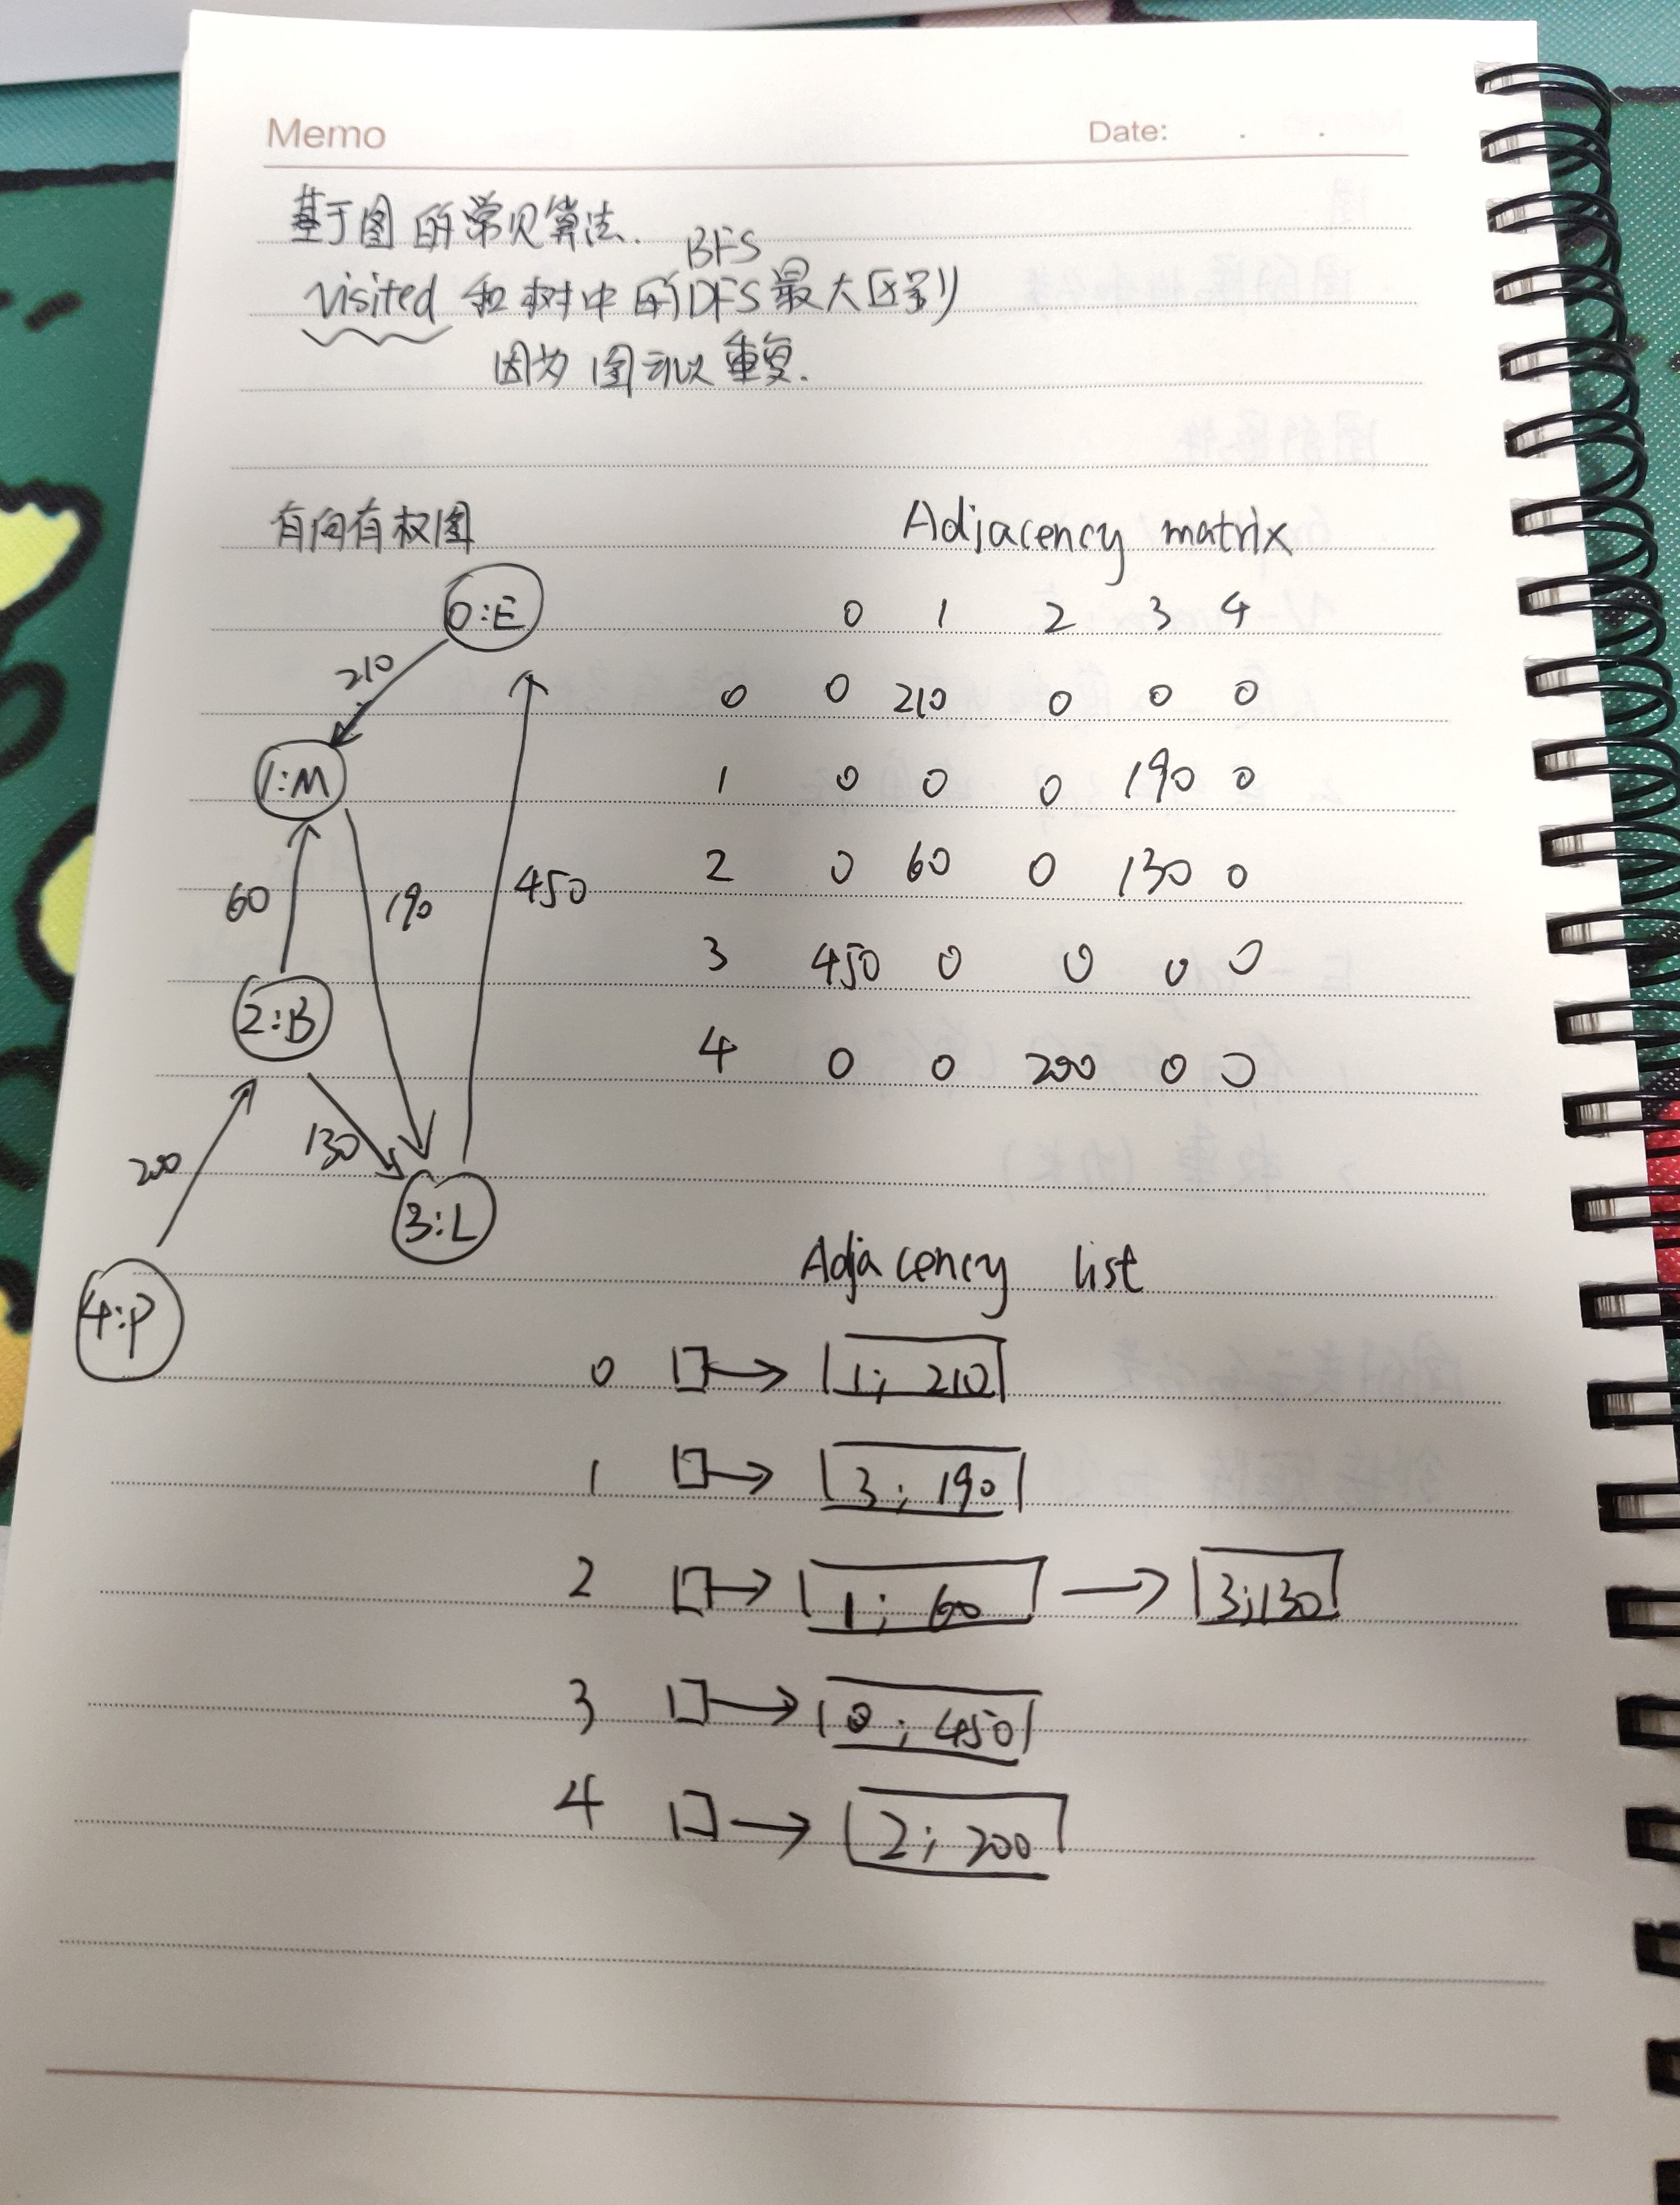 Memo Date: . .
基于图的常见算法.
BFS
visited 和树中的DFS最大区别
因为图可以重复.
有向有权图
0:E
210
1:M
60
190
450
2:B
200
130
3:L
4:P
Adjacency matrix
0 1 2 3 4
0 0 210 0 0 0
1 0 0 0 190 0
2 0 60 0 130 0
3 450 0 0 0 0
4 0 0 200 0 0
Adjacency list
0 1; 210
1 3; 190
2 1; 60 3;130
3 0; 450
4 2; 200